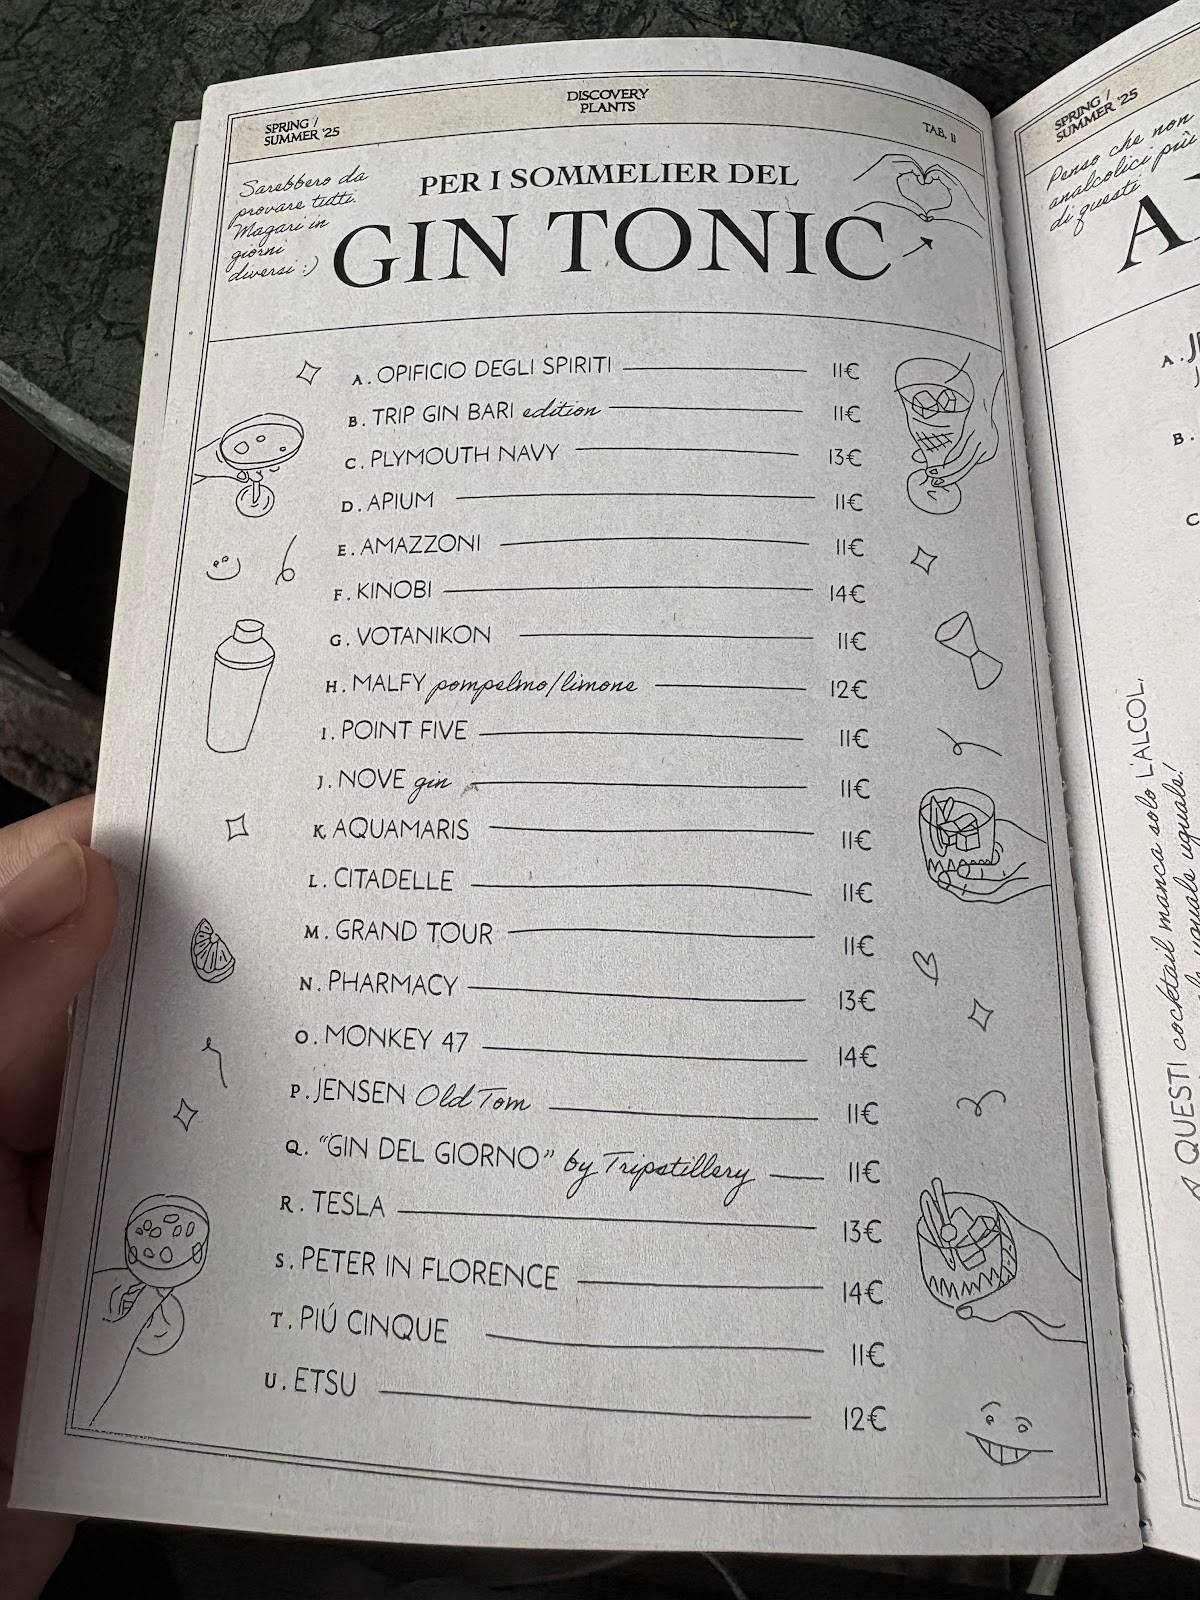 SPRING /
SUMMER '25
DISCOVERY
PLANTS
TAB. 11
Sarebbero da
provare tutti.
Magari in
giorni
diversi :)
PER I SOMMELIER DEL
GIN TONIC
A. OPIFICIO DEGLI SPIRITI 11€
B. TRIP GIN BARI edition 11€
C. PLYMOUTH NAVY 13€
D. APIUM 11€
E. AMAZZONI 11€
F. KINOBI 14€
G. VOTANIKON 11€
H. MALFY pompelmo/limone 12€
I. POINT FIVE 11€
J. NOVE gin 11€
K. AQUAMARIS 11€
L. CITADELLE 11€
M. GRAND TOUR 11€
N. PHARMACY 13€
O. MONKEY 47 14€
P. JENSEN Old Tom 11€
Q. "GIN DEL GIORNO" by Tripstillery 11€
R. TESLA 13€
S. PETER IN FLORENCE 14€
T. PIÚ CINQUE 11€
U. ETSU 12€
SPRING /
SUMMER '25
Penso che non
analcolici più
di questi
A
A. J
B.
C
A QUESTI cocktail manca solo L'ALCOL,
uguale uguale!